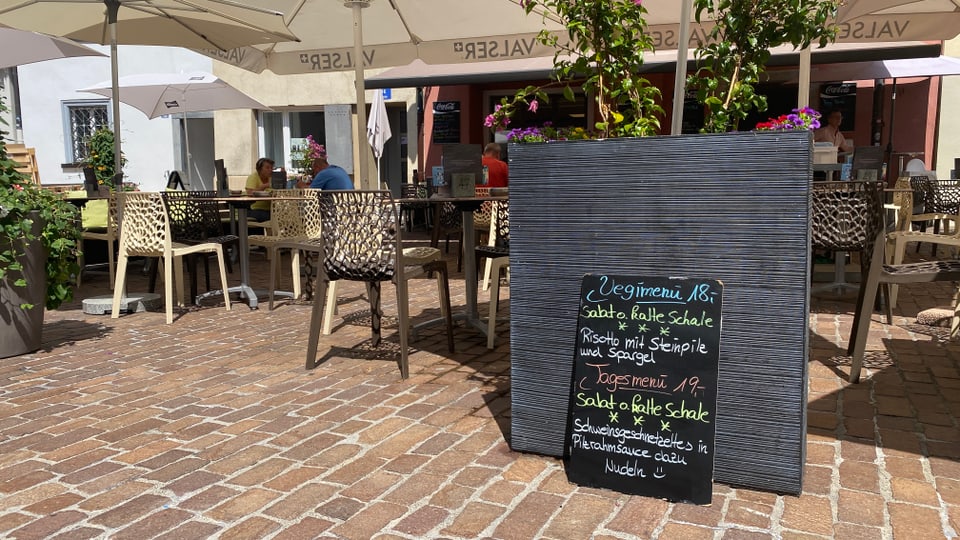 VALSER
VALSER
VALSER
VALSER
Coca-Cola
Coca-Cola
Vegimenü 18.-
Salat o. kalte Schale
* * *
Risotto mit Steinpilz
und Spargel
Tagesmenü 19,-
Salat o. kalte Schale
* * *
Schweinsgeschnetzeltes in
Pilzrahmsauce dazu
Nudeln